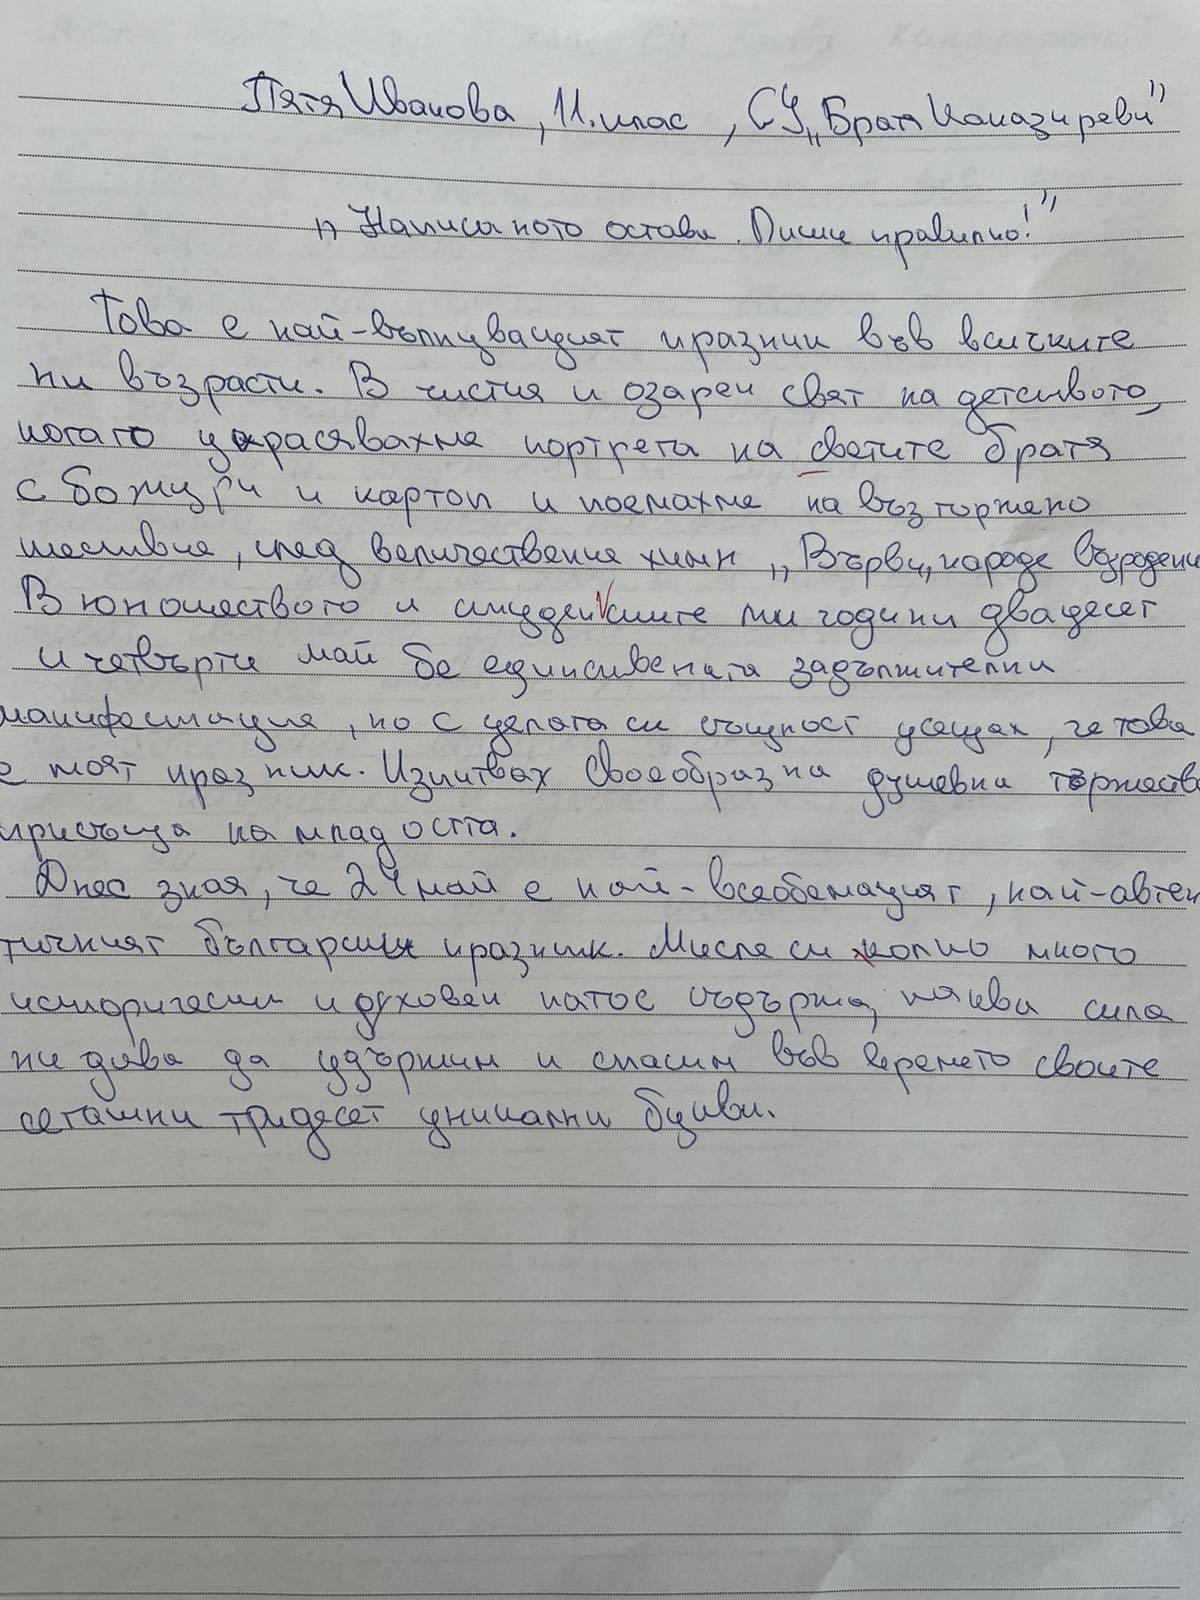 Петя Иванова, 11. клас, СУ „Братя Каназиреви"
„Написаното остава. Пиши правилно!"
Това е най-вълнуващият празник във всичките
ни възрасти. В чистия и озарен свят на детството,
когато украсявахме портрета на светите братя
с божури и картон и поемахме на възторжено
шествие, след величествения химн „Върви, народе возродени
В юношеството и студентските ми години двадесет
и четвърти май бе единствената задължителни
манифестация, но с цялата си същност усещах, че това
е моят празник. Изпитвах своеобразна душевна тържеств
присъща на младостта.
Днес зная, че 24 май е най-всеобемащият, най-автен
тичният български празник. Мисля си колко много
исторически и духовен патос съдържа, каква сила
ни дава да удържим и спасим във времето своите
сегашни тридесет уникални букви.